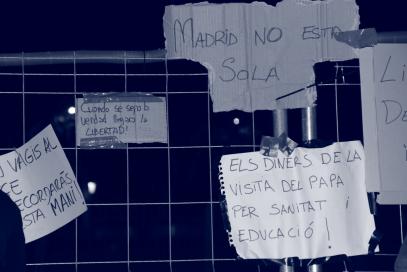 MADRID NO ESTA
SOLA
Cuando se sepa la
verdad llegara la
LIBERTAD!
VAGIS AL
CE
ECORDARÀS
STA MANI
ELS DINERS DE LA
VISITA DEL PAPA
PER SANITAT i
EDUCACIÓ!
LI
DE